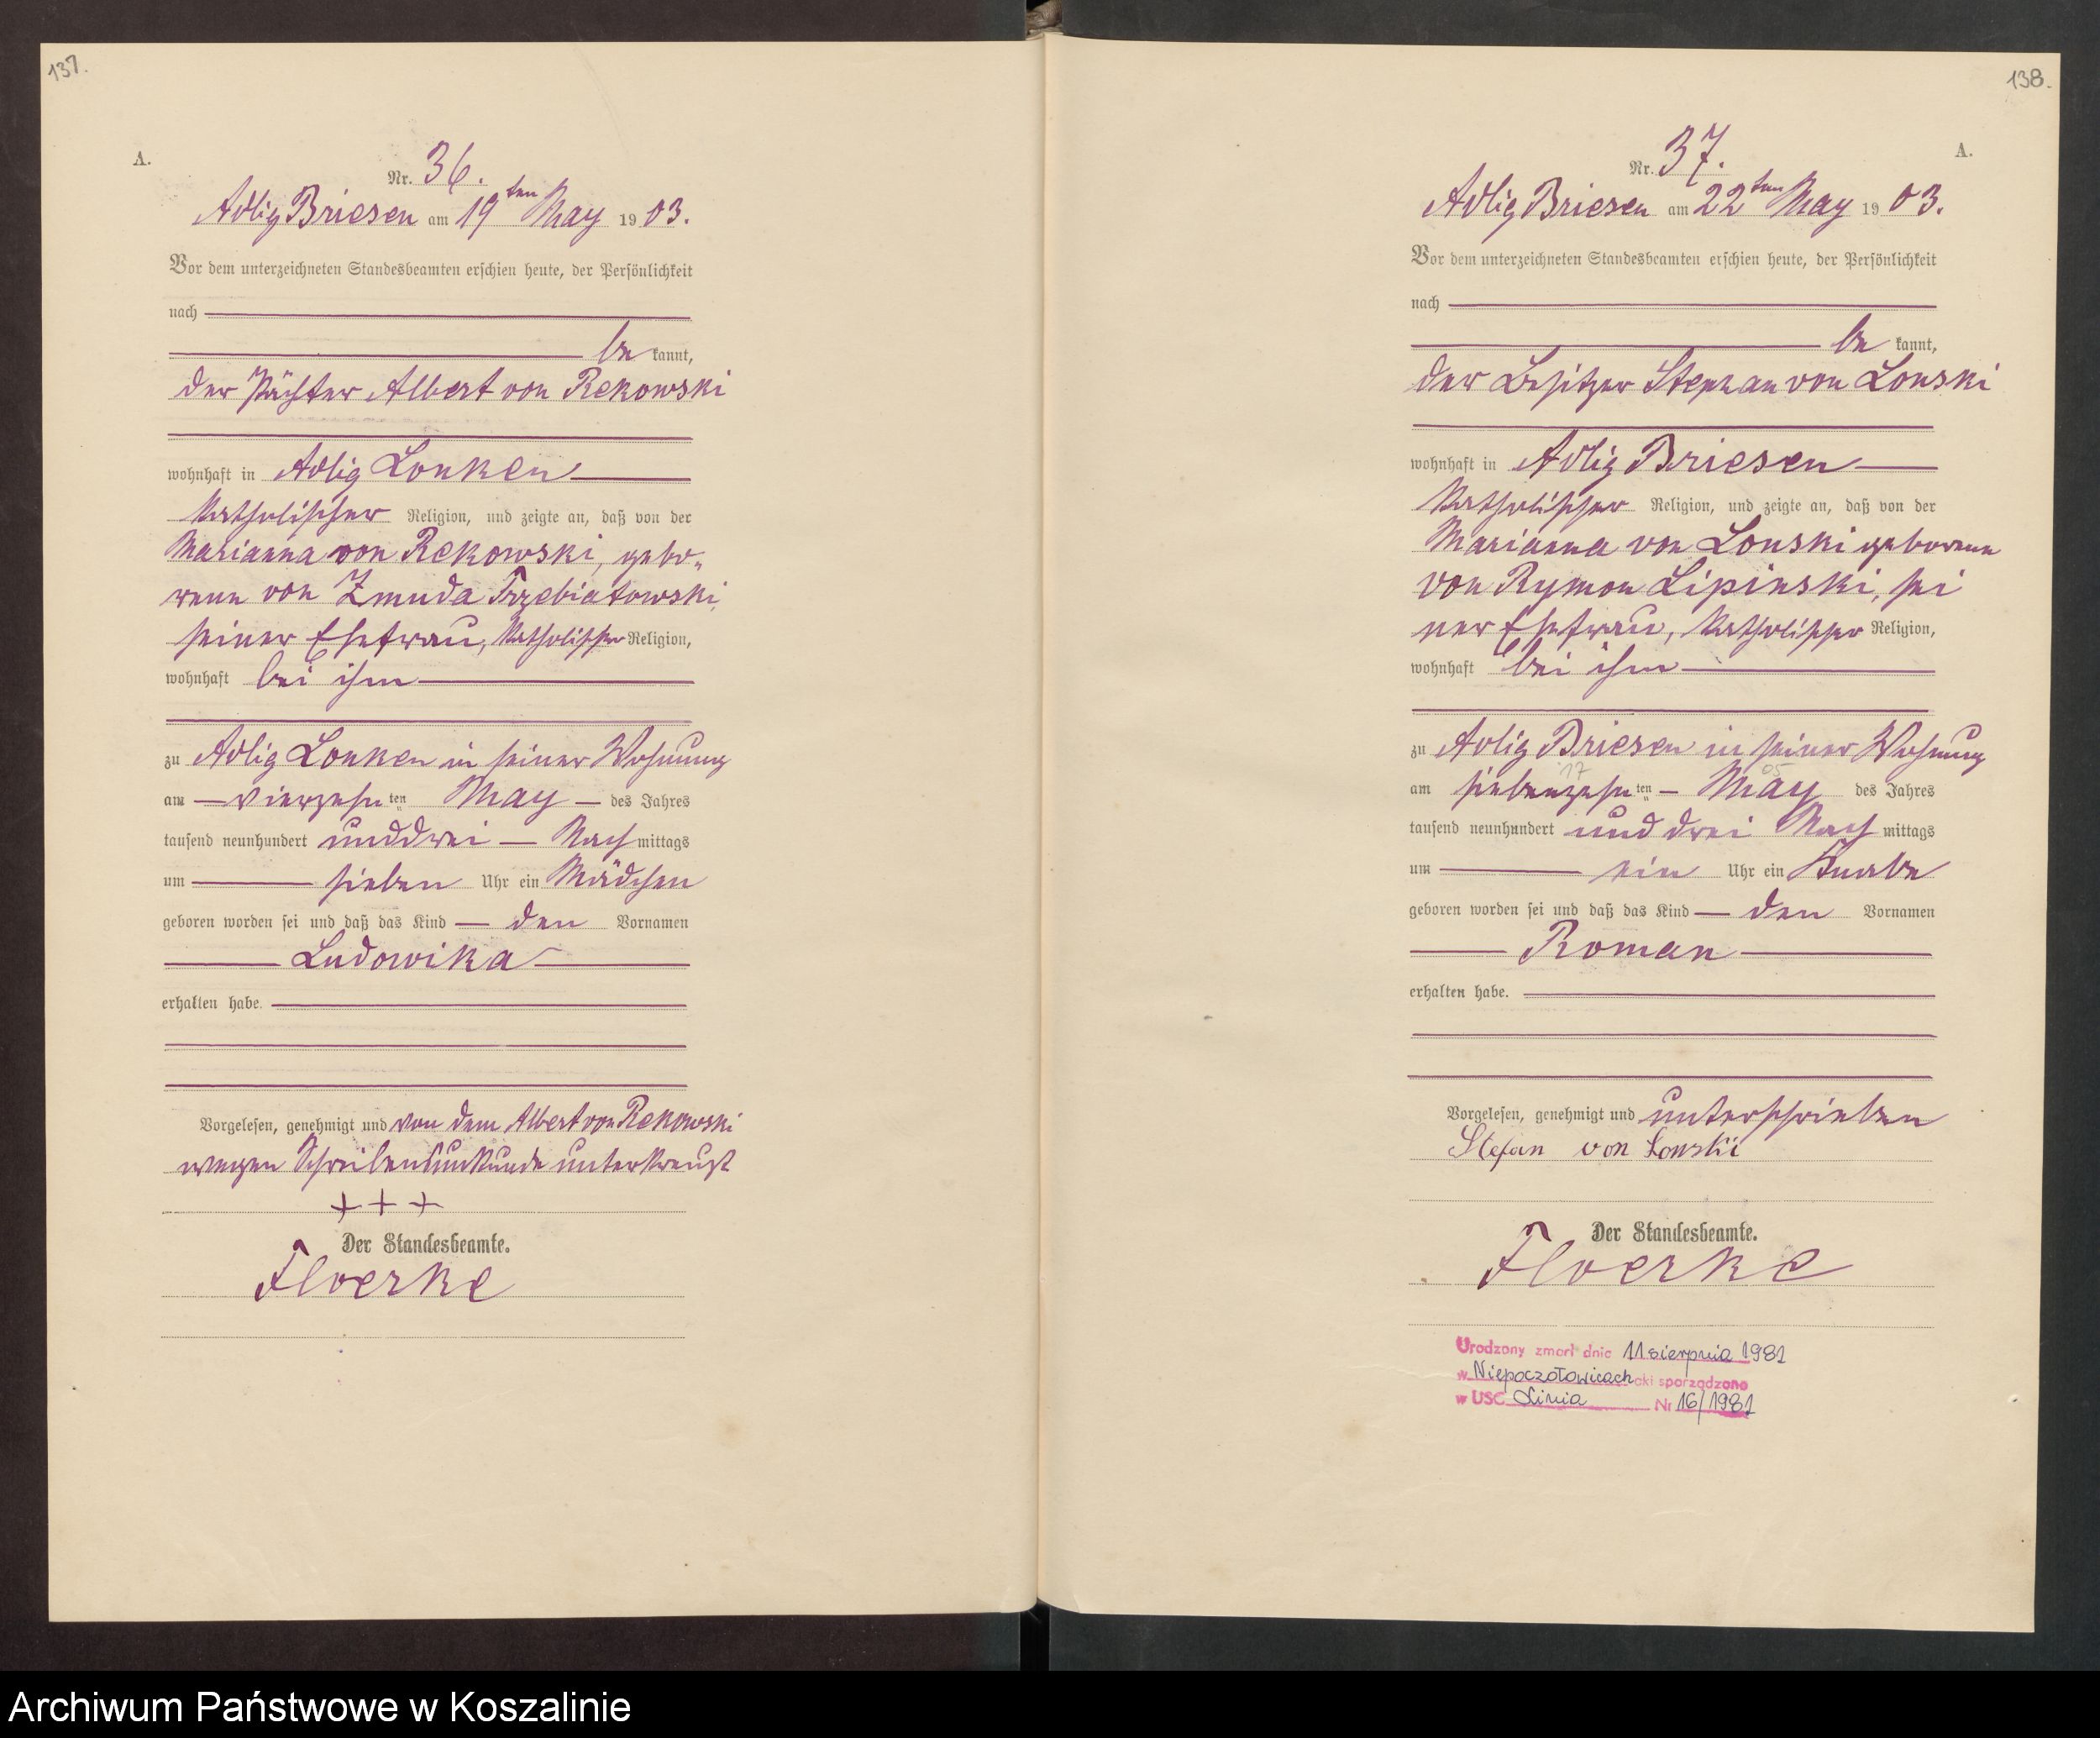 137.
A.
Nr. 36.
Adlig Briesen am 19ten May 1903.
Vor dem unterzeichneten Standesbeamten erschien heute, der Persönlichkeit
nach
be kannt,
der Pächter Albert von Rekowski
wohnhaft in Adlig Lonken
katholischer Religion, und zeigte an, daß von der
Marianna von Rekowski, gebo-
rene von Zmuda Trzebiatowski,
seiner Ehefrau, katholischer Religion,
wohnhaft bei ihm
zu Adlig Lonken in seiner Wohnung
am vierzehnten May des Jahres
tausend neunhundert und drei Nachmittags
um sieben Uhr ein Mädchen
geboren worden sei und daß das Kind den Vornamen
Ludowika
erhalten habe.
Vorgelesen, genehmigt und von dem Albert von Rekowski
wegen Schreibensunkunde unterkreuzt
+++
Der Standesbeamte.
Floerke
138.
A.
Nr. 37.
Adlig Briesen am 22ten May 1903.
Vor dem unterzeichneten Standesbeamten erschien heute, der Persönlichkeit
nach
be kannt,
der Besitzer Stephan von Lonski
wohnhaft in Adlig Briesen
katholischer Religion, und zeigte an, daß von der
Marianna von Lonski geborene
von Rymon Lipinski, sei
ner Ehefrau, katholischer Religion,
wohnhaft bei ihm
zu Adlig Briesen in seiner Wohnung
17 05
am siebenzehnten May des Jahres
tausend neunhundert und drei Nachmittags
um ein Uhr ein Knabe
geboren worden sei und daß das Kind den Vornamen
Roman
erhalten habe.
Vorgelesen, genehmigt und unterschrieben
Stefan von Lonski
Der Standesbeamte.
Floerke
Urodzony zmarł dnia 11 sierpnia 1981
w Niepoczołowicach akt sporządzono
w USC Linia Nr 16/1981
Archiwum Państwowe w Koszalinie